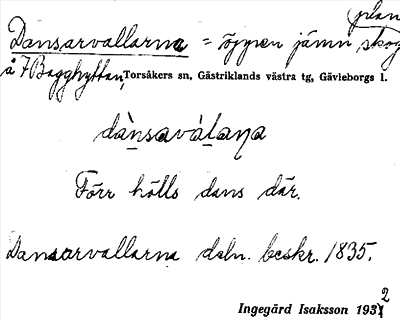 plan
Dansarvallarna = öppen jämn skog
å 7 Bagghyttan, Torsåkers sn, Gästriklands västra tg, Gävleborgs l.
dànsavàlaṇa
Förr hölls dans där.
Dansarvallarna deln. beskr. 1835.
Ingegärd Isaksson 1932